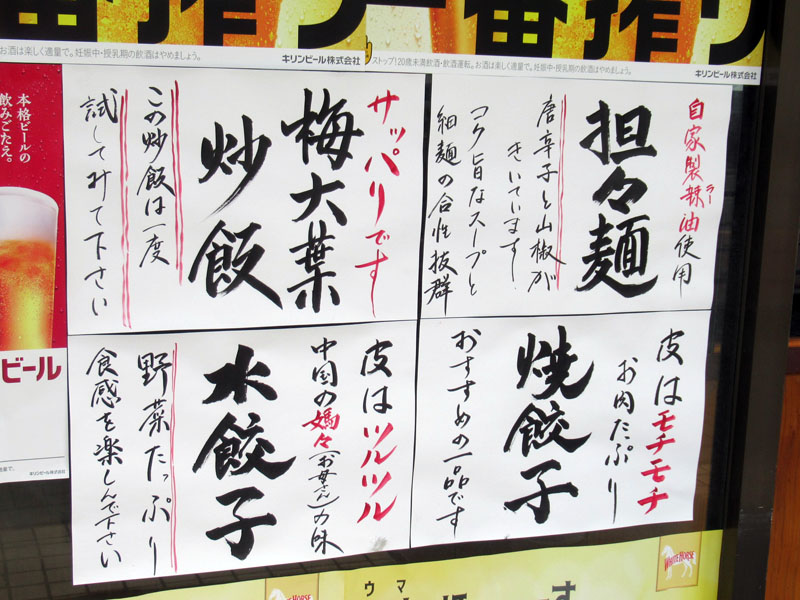 一番搾り一番搾り
お酒は楽しく適量で。妊娠中・授乳期の飲酒はやめましょう。
キリンビール株式会社
ストップ!20歳未満飲酒・飲酒運転。お酒は楽しく適量で。妊娠中・授乳期の飲酒はやめましょう。
キリンビール株式会社
自家製辣油使用
ラー
担々麺
唐辛子と山椒が
きいています!
コク旨なスープと
細麺の合性抜群
サッパリです
梅大葉
炒飯
この炒飯は一度
試してみて下さい
皮はモチモチ
お肉たぷり
焼餃子
おすすめの一品です
皮はツルツル
中国の媽々(お母さん)の味
水餃子
野菜たっぷり
食感を楽しんで下さい
本格ビールの
飲みごたえ。
ビール
キリンビール株式会社
WHITE HORSE
ウマ
WHITE HORSE